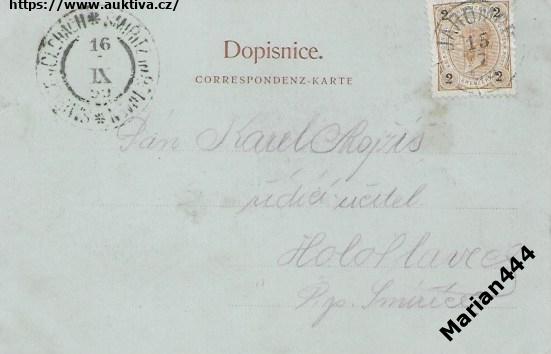 https://www.auktiva.cz/
16
IX
99
Dopisnice.
CORRESPONDENZ-KARTE
2 2
15
2 2
Pán Karel Rojžis
řídící učitel
Holohlavec
P.p. Smiřice
Marian444